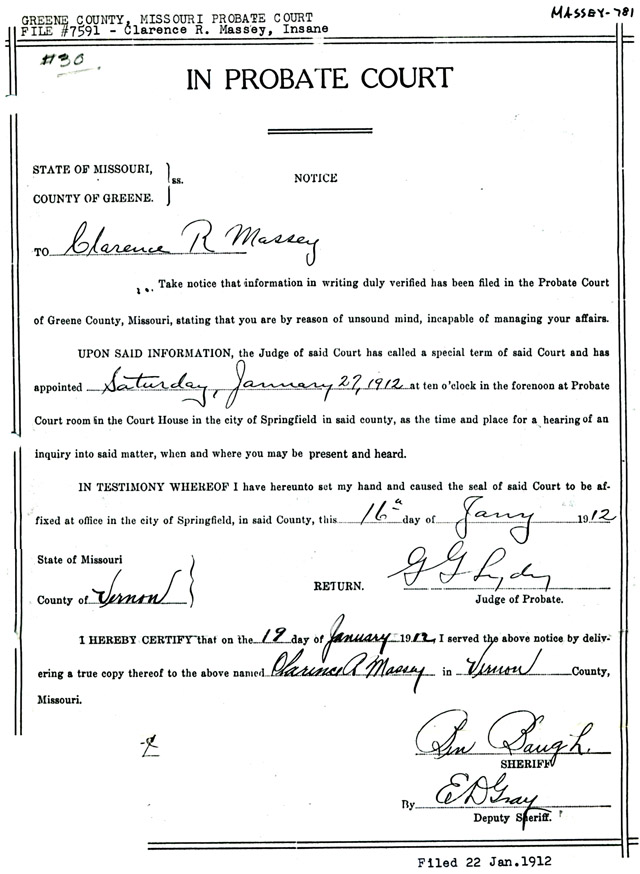 GREENE COUNTY, MISSOURI PROBATE COURT
FILE #7591 - Clarence R. Massey, Insane
MASSEY-781
#30
IN PROBATE COURT
STATE OF MISSOURI,
COUNTY OF GREENE.
ss.
NOTICE
TO Clarence R Massey
Take notice that information in writing duly verified has been filed in the Probate Court
of Greene County, Missouri, stating that you are by reason of unsound mind, incapable of managing your affairs.
UPON SAID INFORMATION, the Judge of said Court has called a special term of said Court and has
appointed Saturday, January 27, 1912 at ten o'clock in the forenoon at Probate
Court room in the Court House in the city of Springfield in said county, as the time and place for a hearing of an
inquiry into said matter, when and where you may be present and heard.
IN TESTIMONY WHEREOF I have hereunto set my hand and caused the seal of said Court to be af-
fixed at office in the city of Springfield, in said County, this 16 day of Jany 1912
State of Missouri
County of Vernon
RETURN.
G G Lydy
Judge of Probate.
I HEREBY CERTIFY that on the 19 day of January 1912, I served the above notice by deliv-
ering a true copy thereof to the above named Clarence R Massey in Vernon County,
Missouri.
Ben Baugh.
SHERIFF
By E D Gray
Deputy Sheriff.
Filed 22 Jan.1912